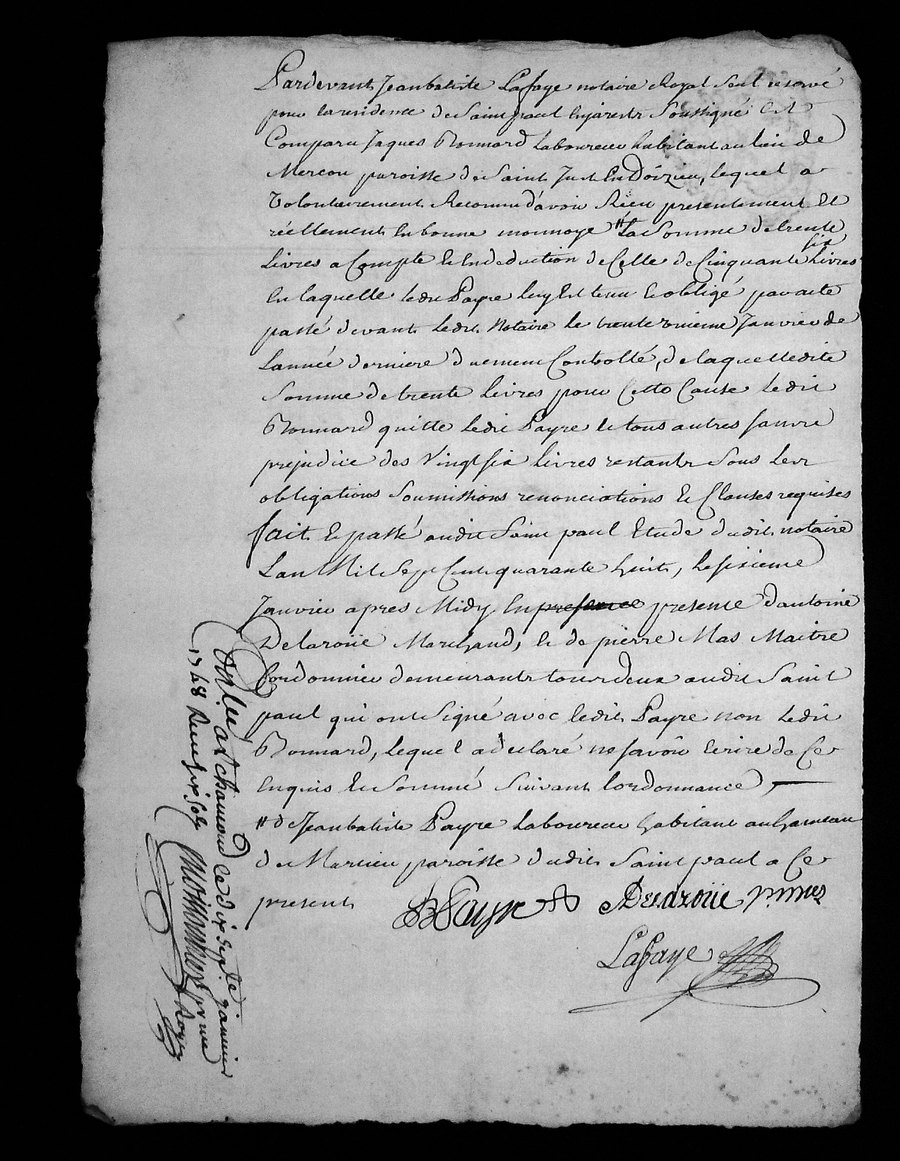 Pardevant Jeanbatiste Lafaye notaire Royal Seul reservé
pour la residence de Saint paul Enjarestz Soussigné Est
Comparu Jaques Bonnard Laboureur habitant au lieu de
Mercou paroisse de Saint Just En Doizieu, lequel a
Volontairement Reconnu d'avoir Rieu presentement Et
réellement En bonne monnoye # La Somme de trente
Livres a Compte Et En deduction de Celle de Cinquante six Livres
En laquelle ledit Payre luy Est tenu Et obligé par acte
passé devant Ledit Notaire le trente unieme Janvier de
Lannée derniere duement Controllé, de laquelledite
Somme de trente Livres pour Cette Cause Ledit
Bonnard quitte Ledit Payre Et tous autres Sauf Le
prejudice des Vingt six Livres restants Sous Les
obligations Soumissions renonciations Et Clauses requises
fait Et passé audit Saint paul Etude dudit notaire
Lan Mil Sept Cent quarante huit, Le sixieme
Janvier apres Midy, En presence presence d'antoine
Delaroüe Marchand, Et de pierre Mas Maitre
Cordonnier demeurants tous deux audit Saint
paul qui ont Signé avec ledit Payre non Ledit
Bonnard, lequel a declaré ne savoir Ecrire de Ce
Enquis Et Sommé Suivant Lordonnance
# de Jeanbatiste Payre Laboureur habitant au hameau
de Marlieu paroisse dudit Saint paul a Ce
present
JB Payre ADelaroüe P. mas
Lafaye
Conllé a St chamond le dix sept. janvier
1748 Receu six sols